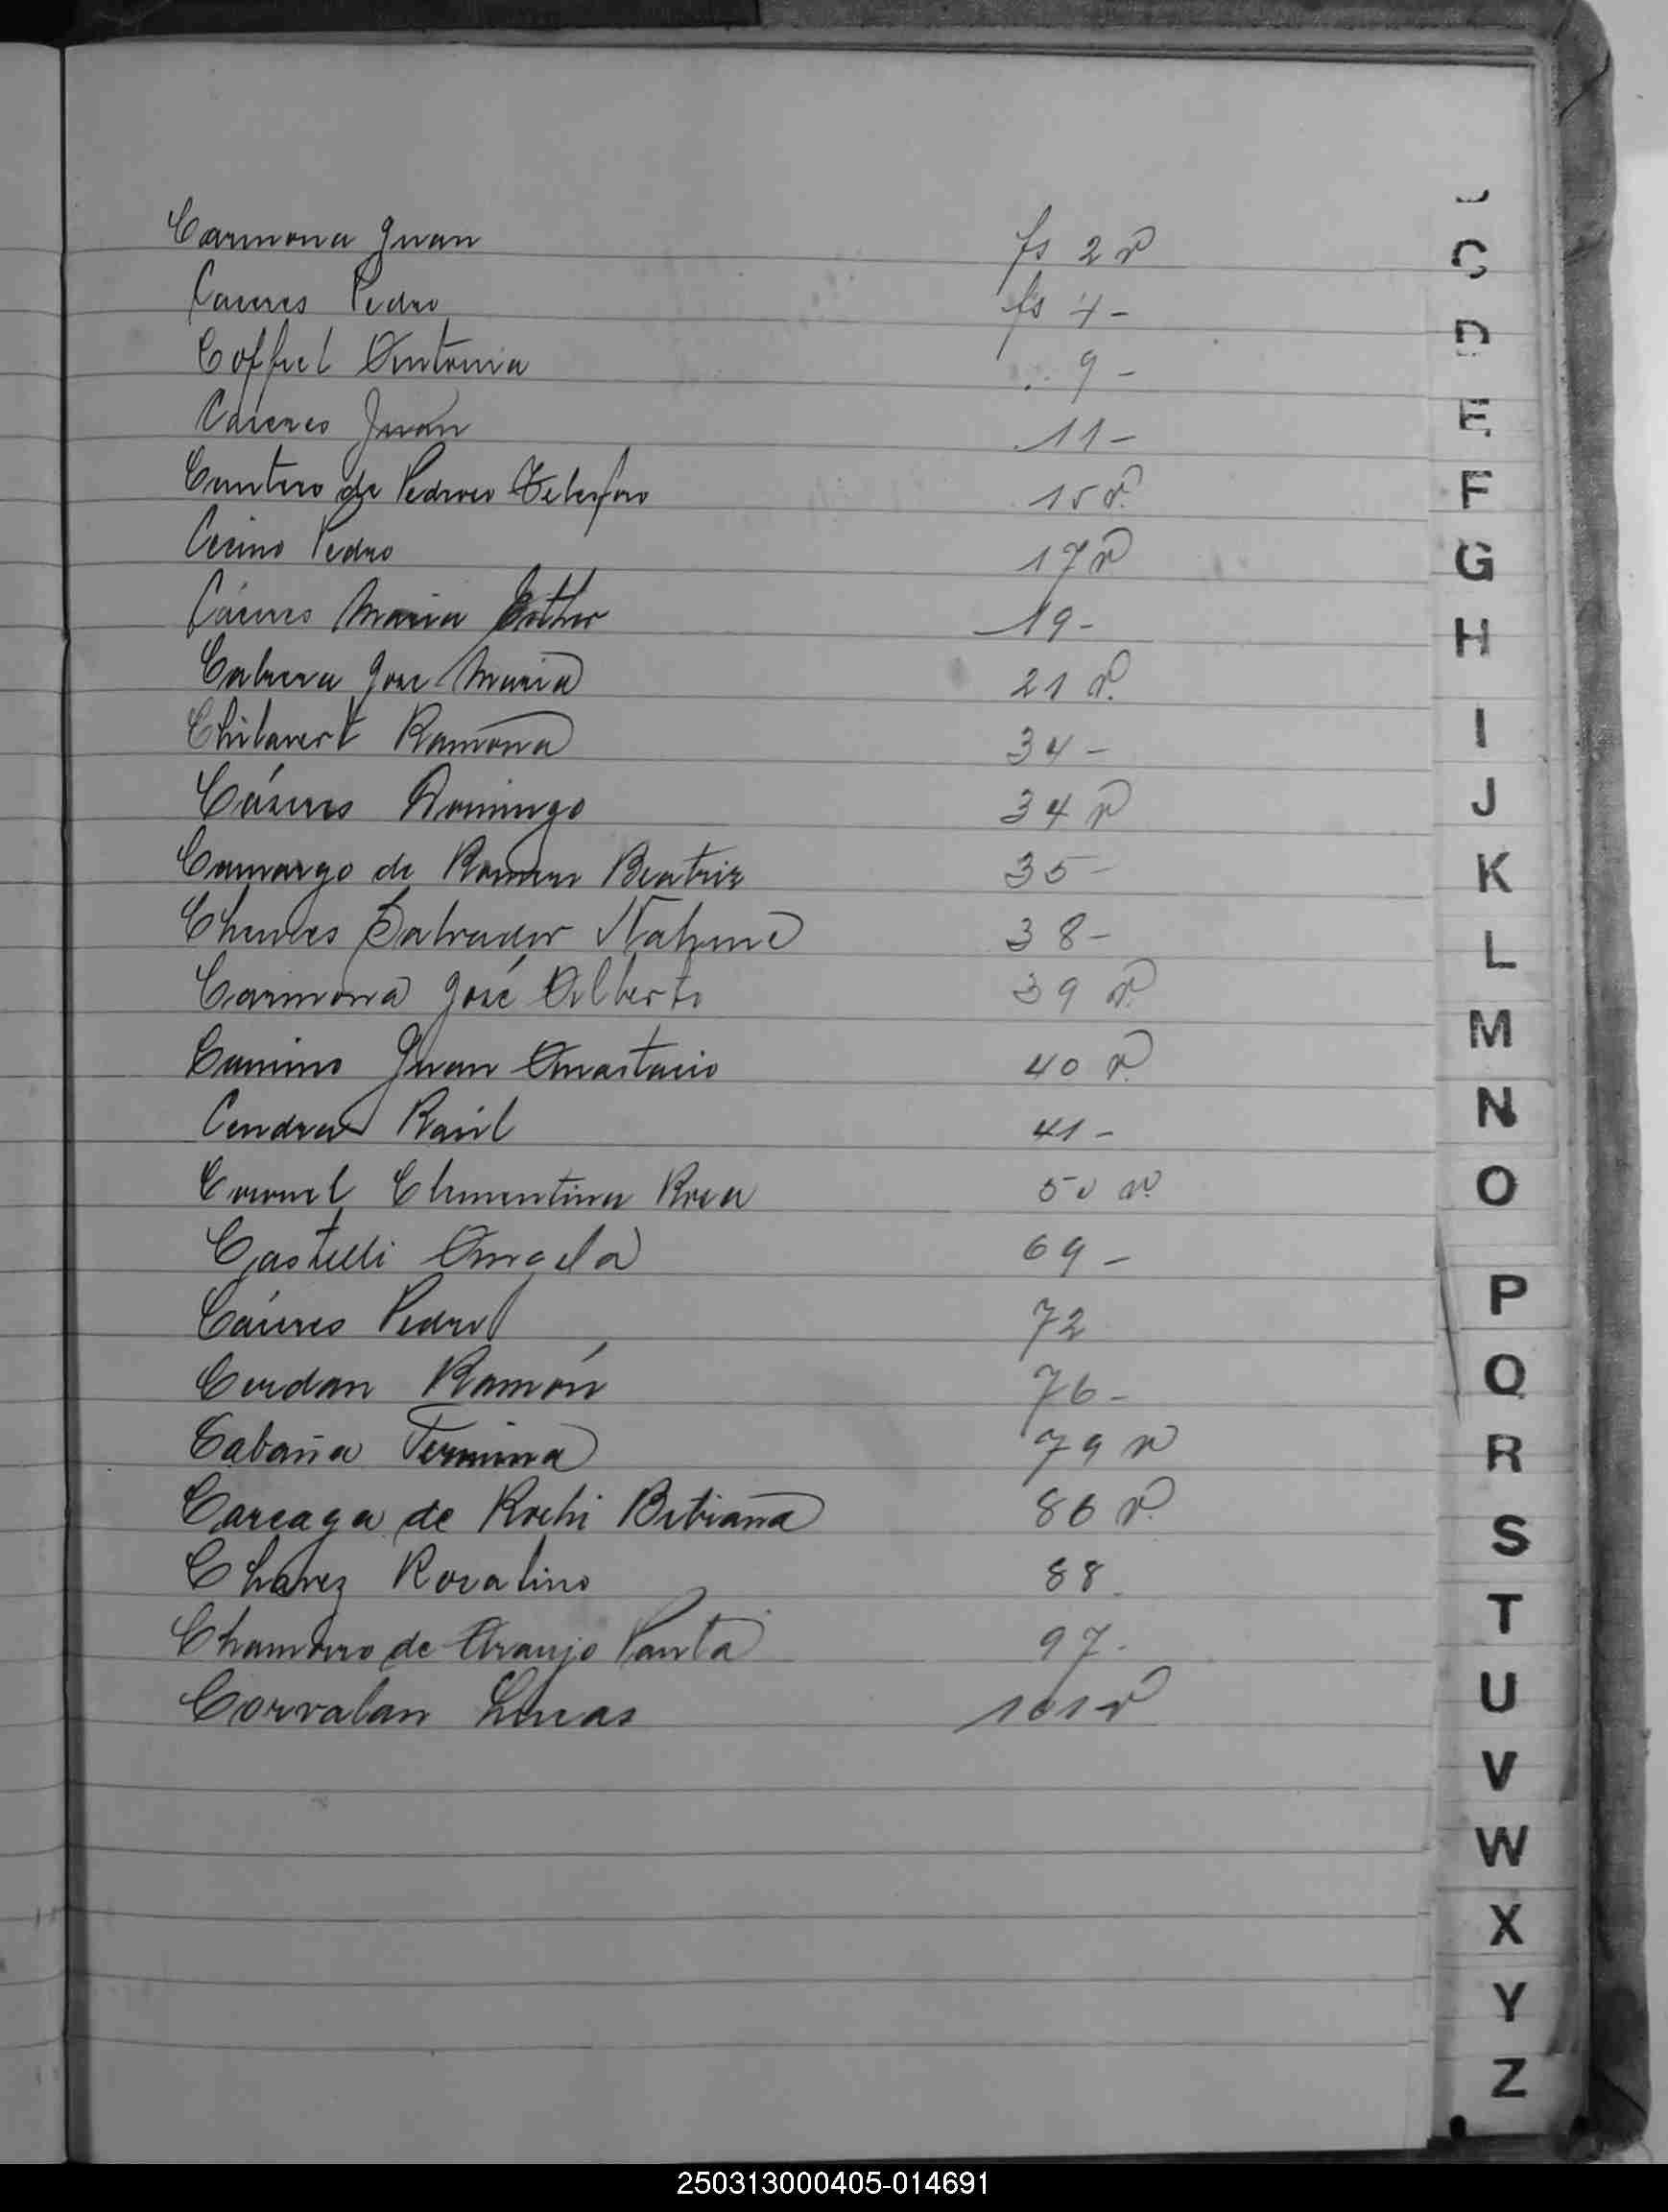 Carmona Juan fs 2 v
Cáceres Pedro fs 4 -
Coffiel Antonia 9 -
Cáceres Juan 11 -
de Telesforo 15 v.
Pedro 17 v
Cáceres Maria Esther 19 -
Cabrera Jose Maria 21 v.
Chilavert Ramona 34 -
Cáseres Domingo 34 v
Camargo de Romero Beatriz 35 -
Salvador 38 -
Carmona José Alberto 39 v.
Juan Anastacio 40 v.
Raúl 41 -
Coronel Clementina Rosa 50 v.
Castelli Angela 69 -
Cáceres Pedro 72
Cerdan Ramón 76 -
Cabaña Fermina 79 v
Careaga de Bibiana 86 v.
Chavez Rosalino 88
Chamorro de Araujo Panta 97 -
Corvalan Lucas 101 v
C
D
E
F
G
H
I
J
K
L
M
N
O
P
Q
R
S
T
U
V
W
X
Y
Z
250313000405-014691